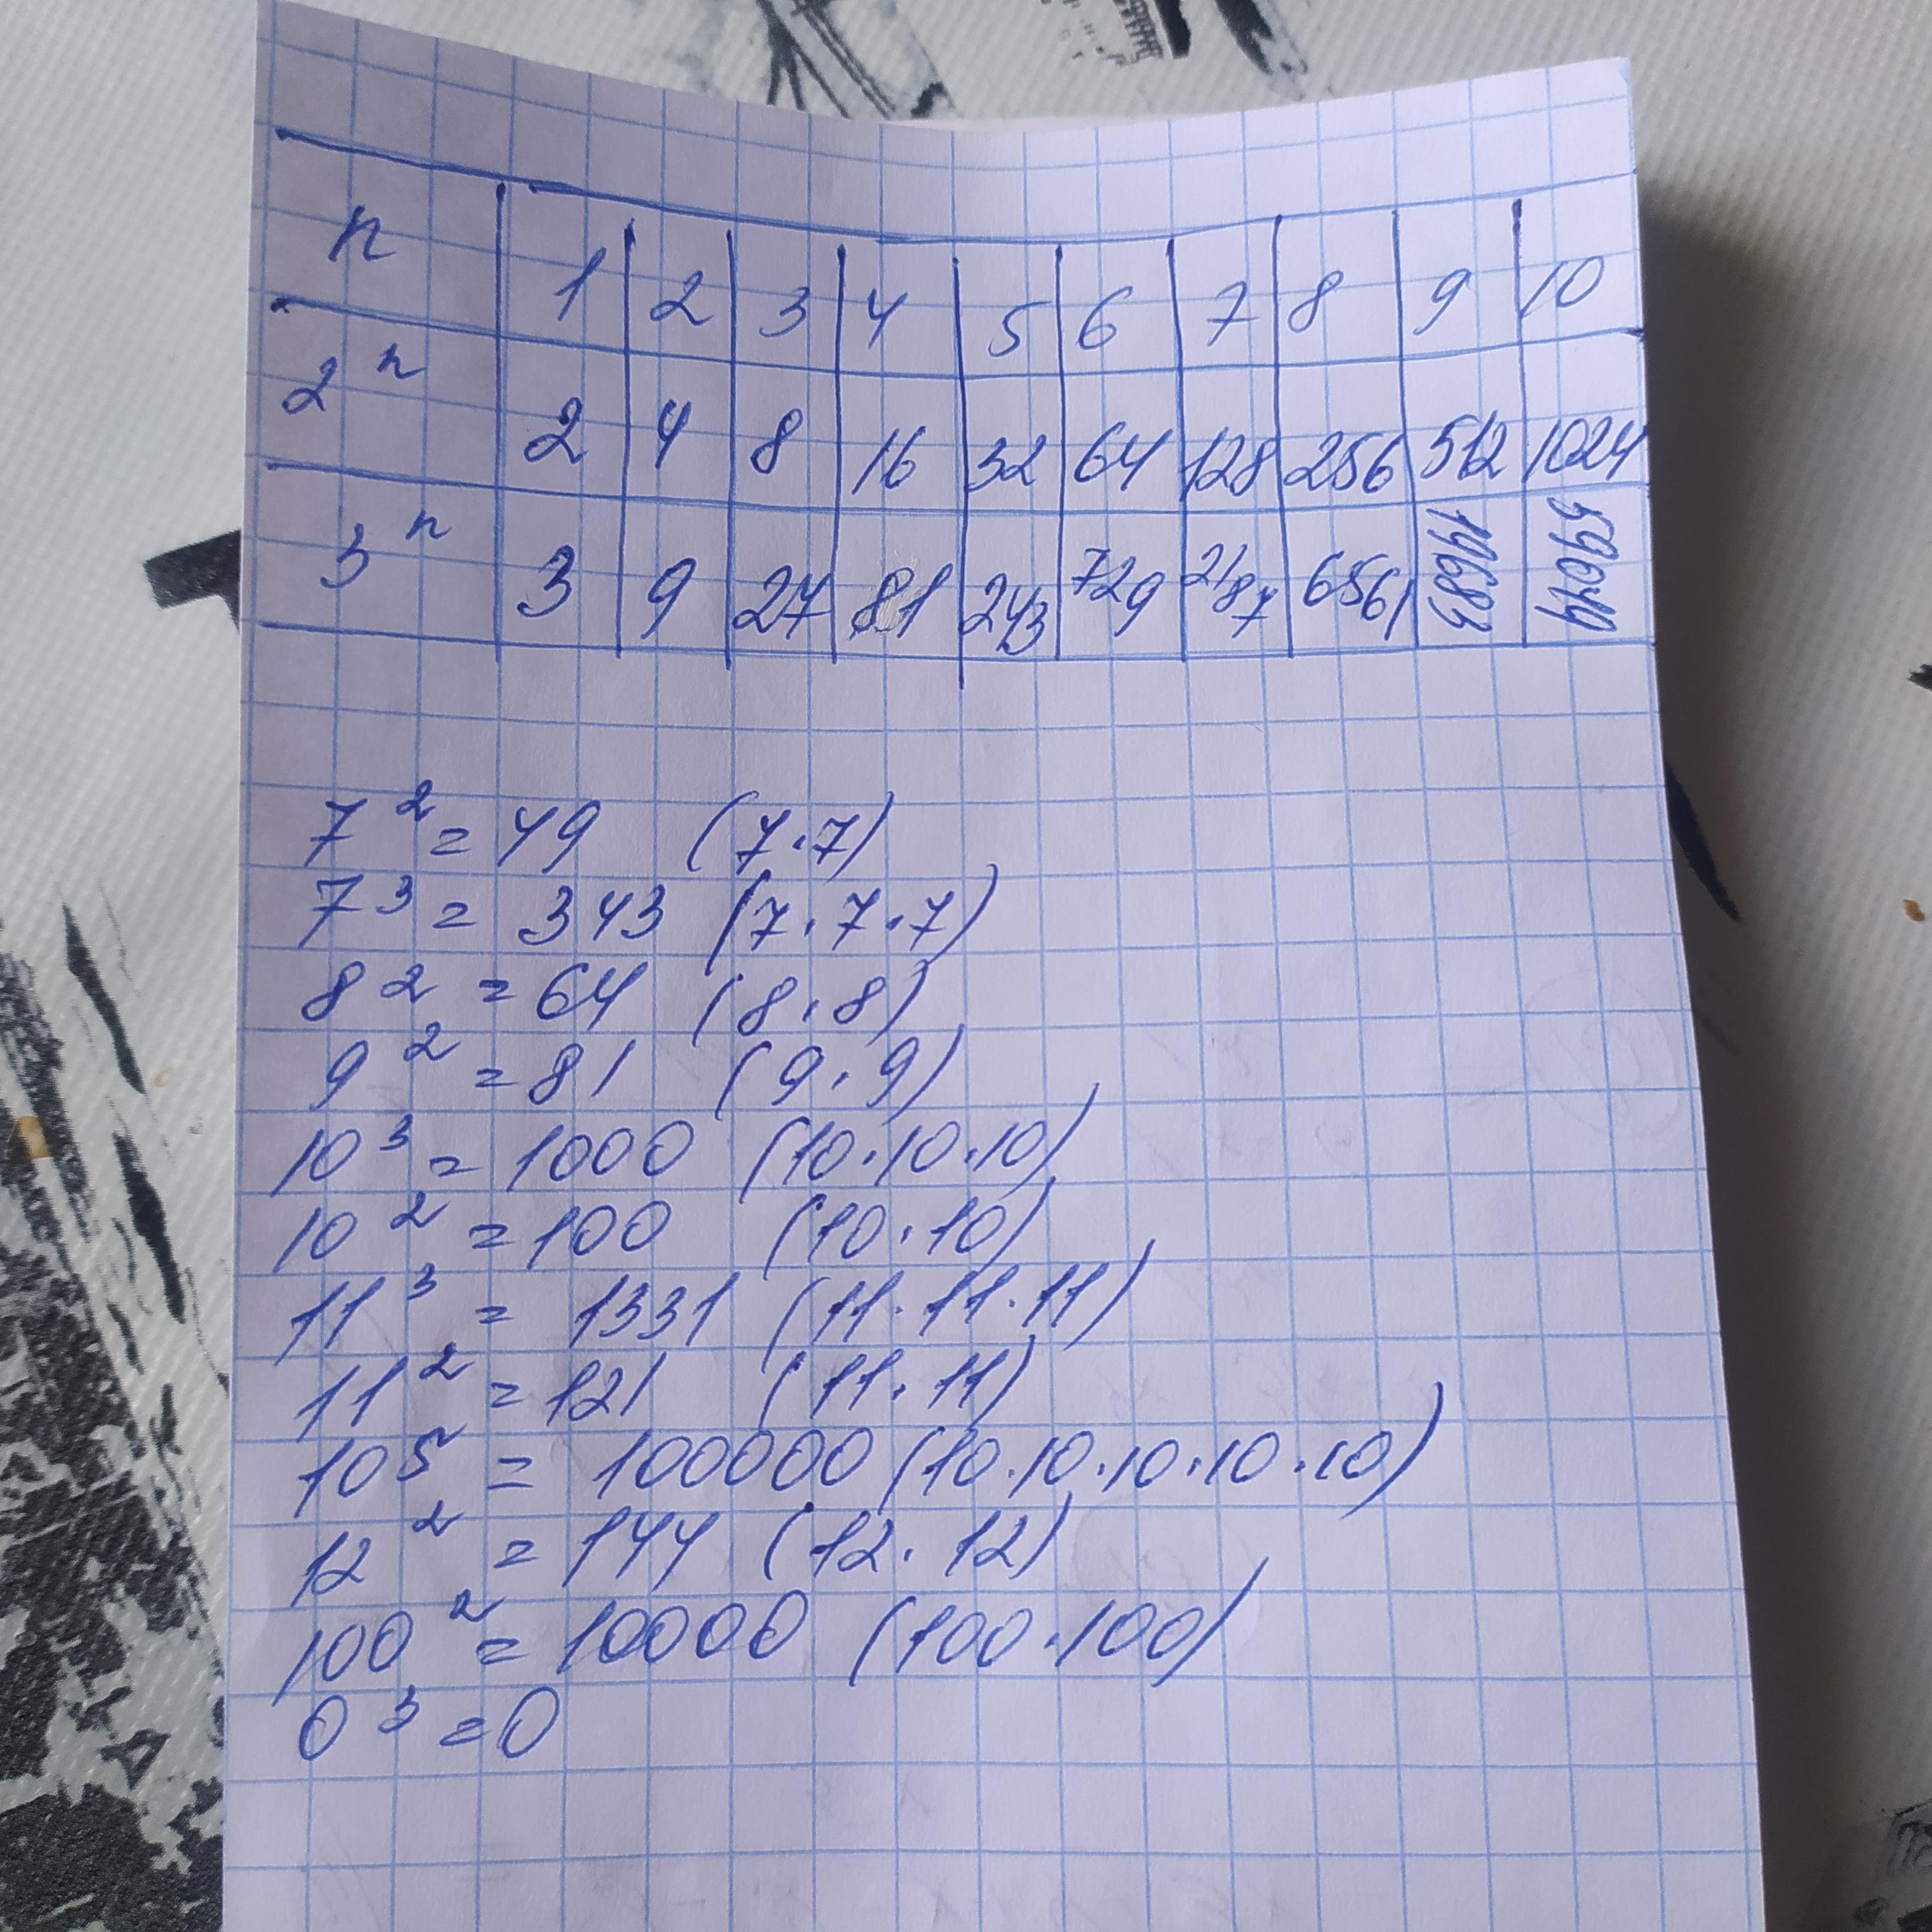 n 1 2 3 4 5 6 7 8 9 10
2ⁿ 2 4 8 16 32 64 128 256 512 1024
3ⁿ 3 9 27 81 243 729 2187 6561 19683 59049
7² = 49 (7·7)
7³ = 343 (7·7·7)
8² = 64 (8·8)
9² = 81 (9·9)
10³ = 1000 (10·10·10)
10² = 100 (10·10)
11³ = 1331 (11·11·11)
11² = 121 (11·11)
10⁵ = 100000 (10·10·10·10·10)
12² = 144 (12·12)
100² = 10000 (100·100)
0³ = 0